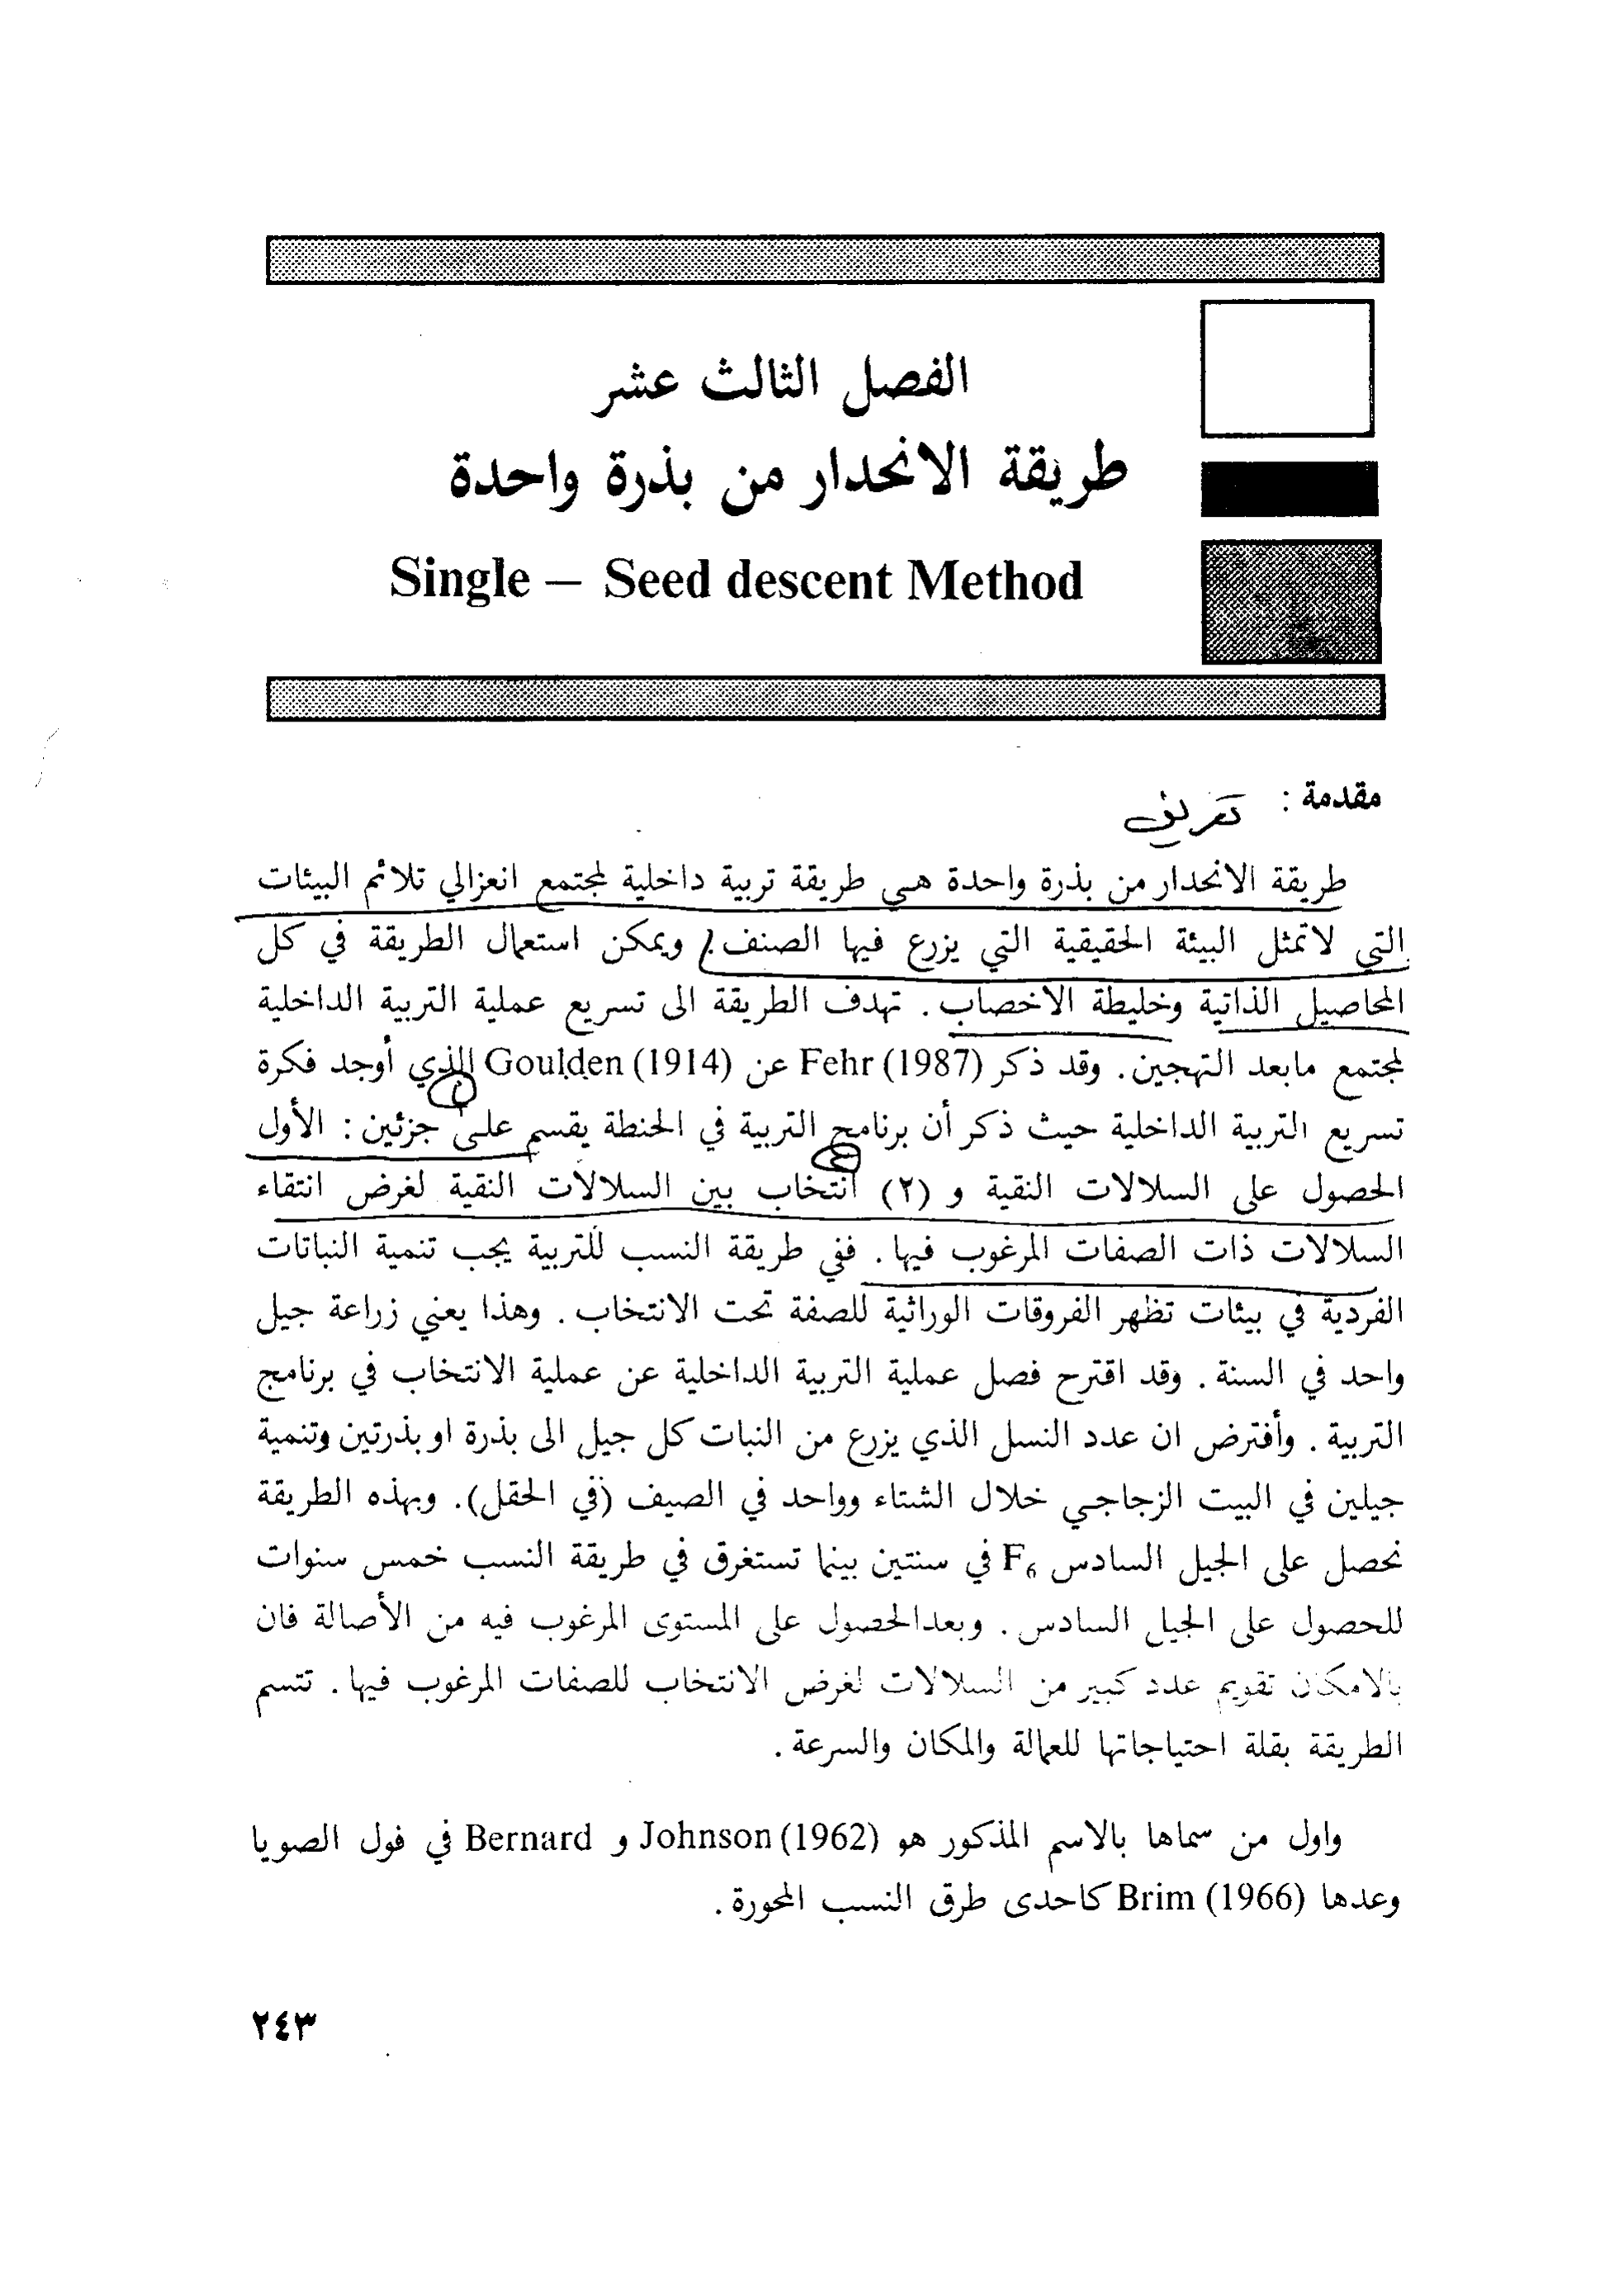 الفصل الثالث عشر
طريقة الانحدار من بذرة واحدة
Single – Seed descent Method
مقدمة : تعريف
طريقة الانحدار من بذرة واحدة هي طريقة تربية داخلية لمجتمع انعزالي تلائم البيئات
التي لاتمثل البيئة الحقيقية التي يزرع فيها الصنف. ويمكن استعمال الطريقة في كل
المحاصيل الذاتية وخليطة الاخصاب. تهدف الطريقة الى تسريع عملية التربية الداخلية
لمجتمع مابعد التهجين. وقد ذكر Fehr (1987) عن Goulden (1914) الذي أوجد فكرة
تسريع التربية الداخلية حيث ذكر أن برنامج التربية في الحنطة يقسم على جزئين : الأول
الحصول على السلالات النقية و (٢) انتخاب بين السلالات النقية لغرض انتقاء
السلالات ذات الصفات المرغوب فيها. ففي طريقة النسب للتربية يجب تنمية النباتات
الفردية في بيئات تظهر الفروقات الوراثية للصفة تحت الانتخاب. وهذا يعني زراعة جيل
واحد في السنة. وقد اقترح فصل عملية التربية الداخلية عن عملية الانتخاب في برنامج
التربية. وأفترض ان عدد النسل الذي يزرع من النبات كل جيل الى بذرة او بذرتين وتنمية
جيلين في البيت الزجاجي خلال الشتاء وواحد في الصيف (في الحقل). وبهذه الطريقة
نحصل على الجيل السادس F₆ في سنتين بينما تستغرق في طريقة النسب خمس سنوات
للحصول على الجيل السادس. وبعدالحصول على المستوى المرغوب فيه من الأصالة فان
بالامكان تقويم عدد كبير من السلالات لغرض الانتخاب للصفات المرغوب فيها. تتسم
الطريقة بقلة احتياجاتها للعمالة والمكان والسرعة.
واول من سماها بالاسم المذكور هو Johnson (1962) و Bernard في فول الصويا
وعدها Brim (1966) كاحدى طرق النسب المحورة.
٢٤٣